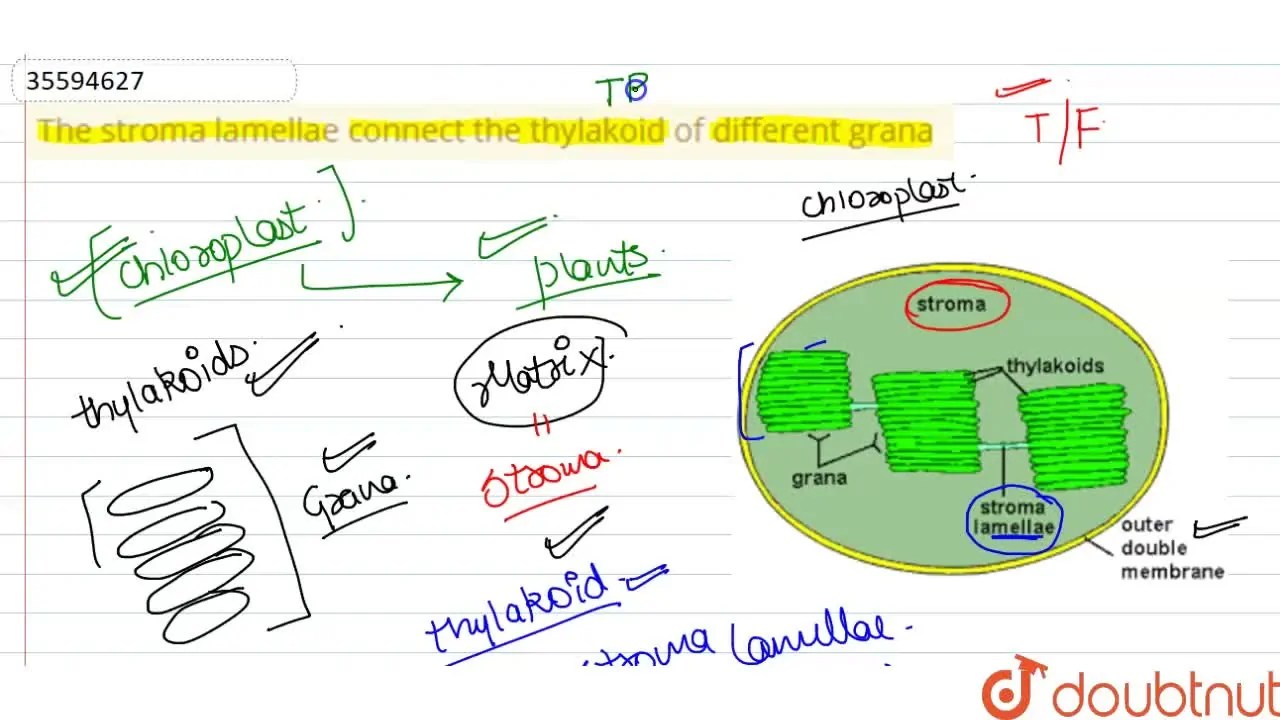 35594627
The stroma lamellae connect the thylakoid of different grana
T/F
Chloroplast
[Chloroplast]
plants
chloroplast
thylakoids
Matrix
"
Stroma
Grana
thylakoid
stroma lamellae
stroma
thylakoids
grana
stroma
lamellae
outer
double
membrane
doubtnut